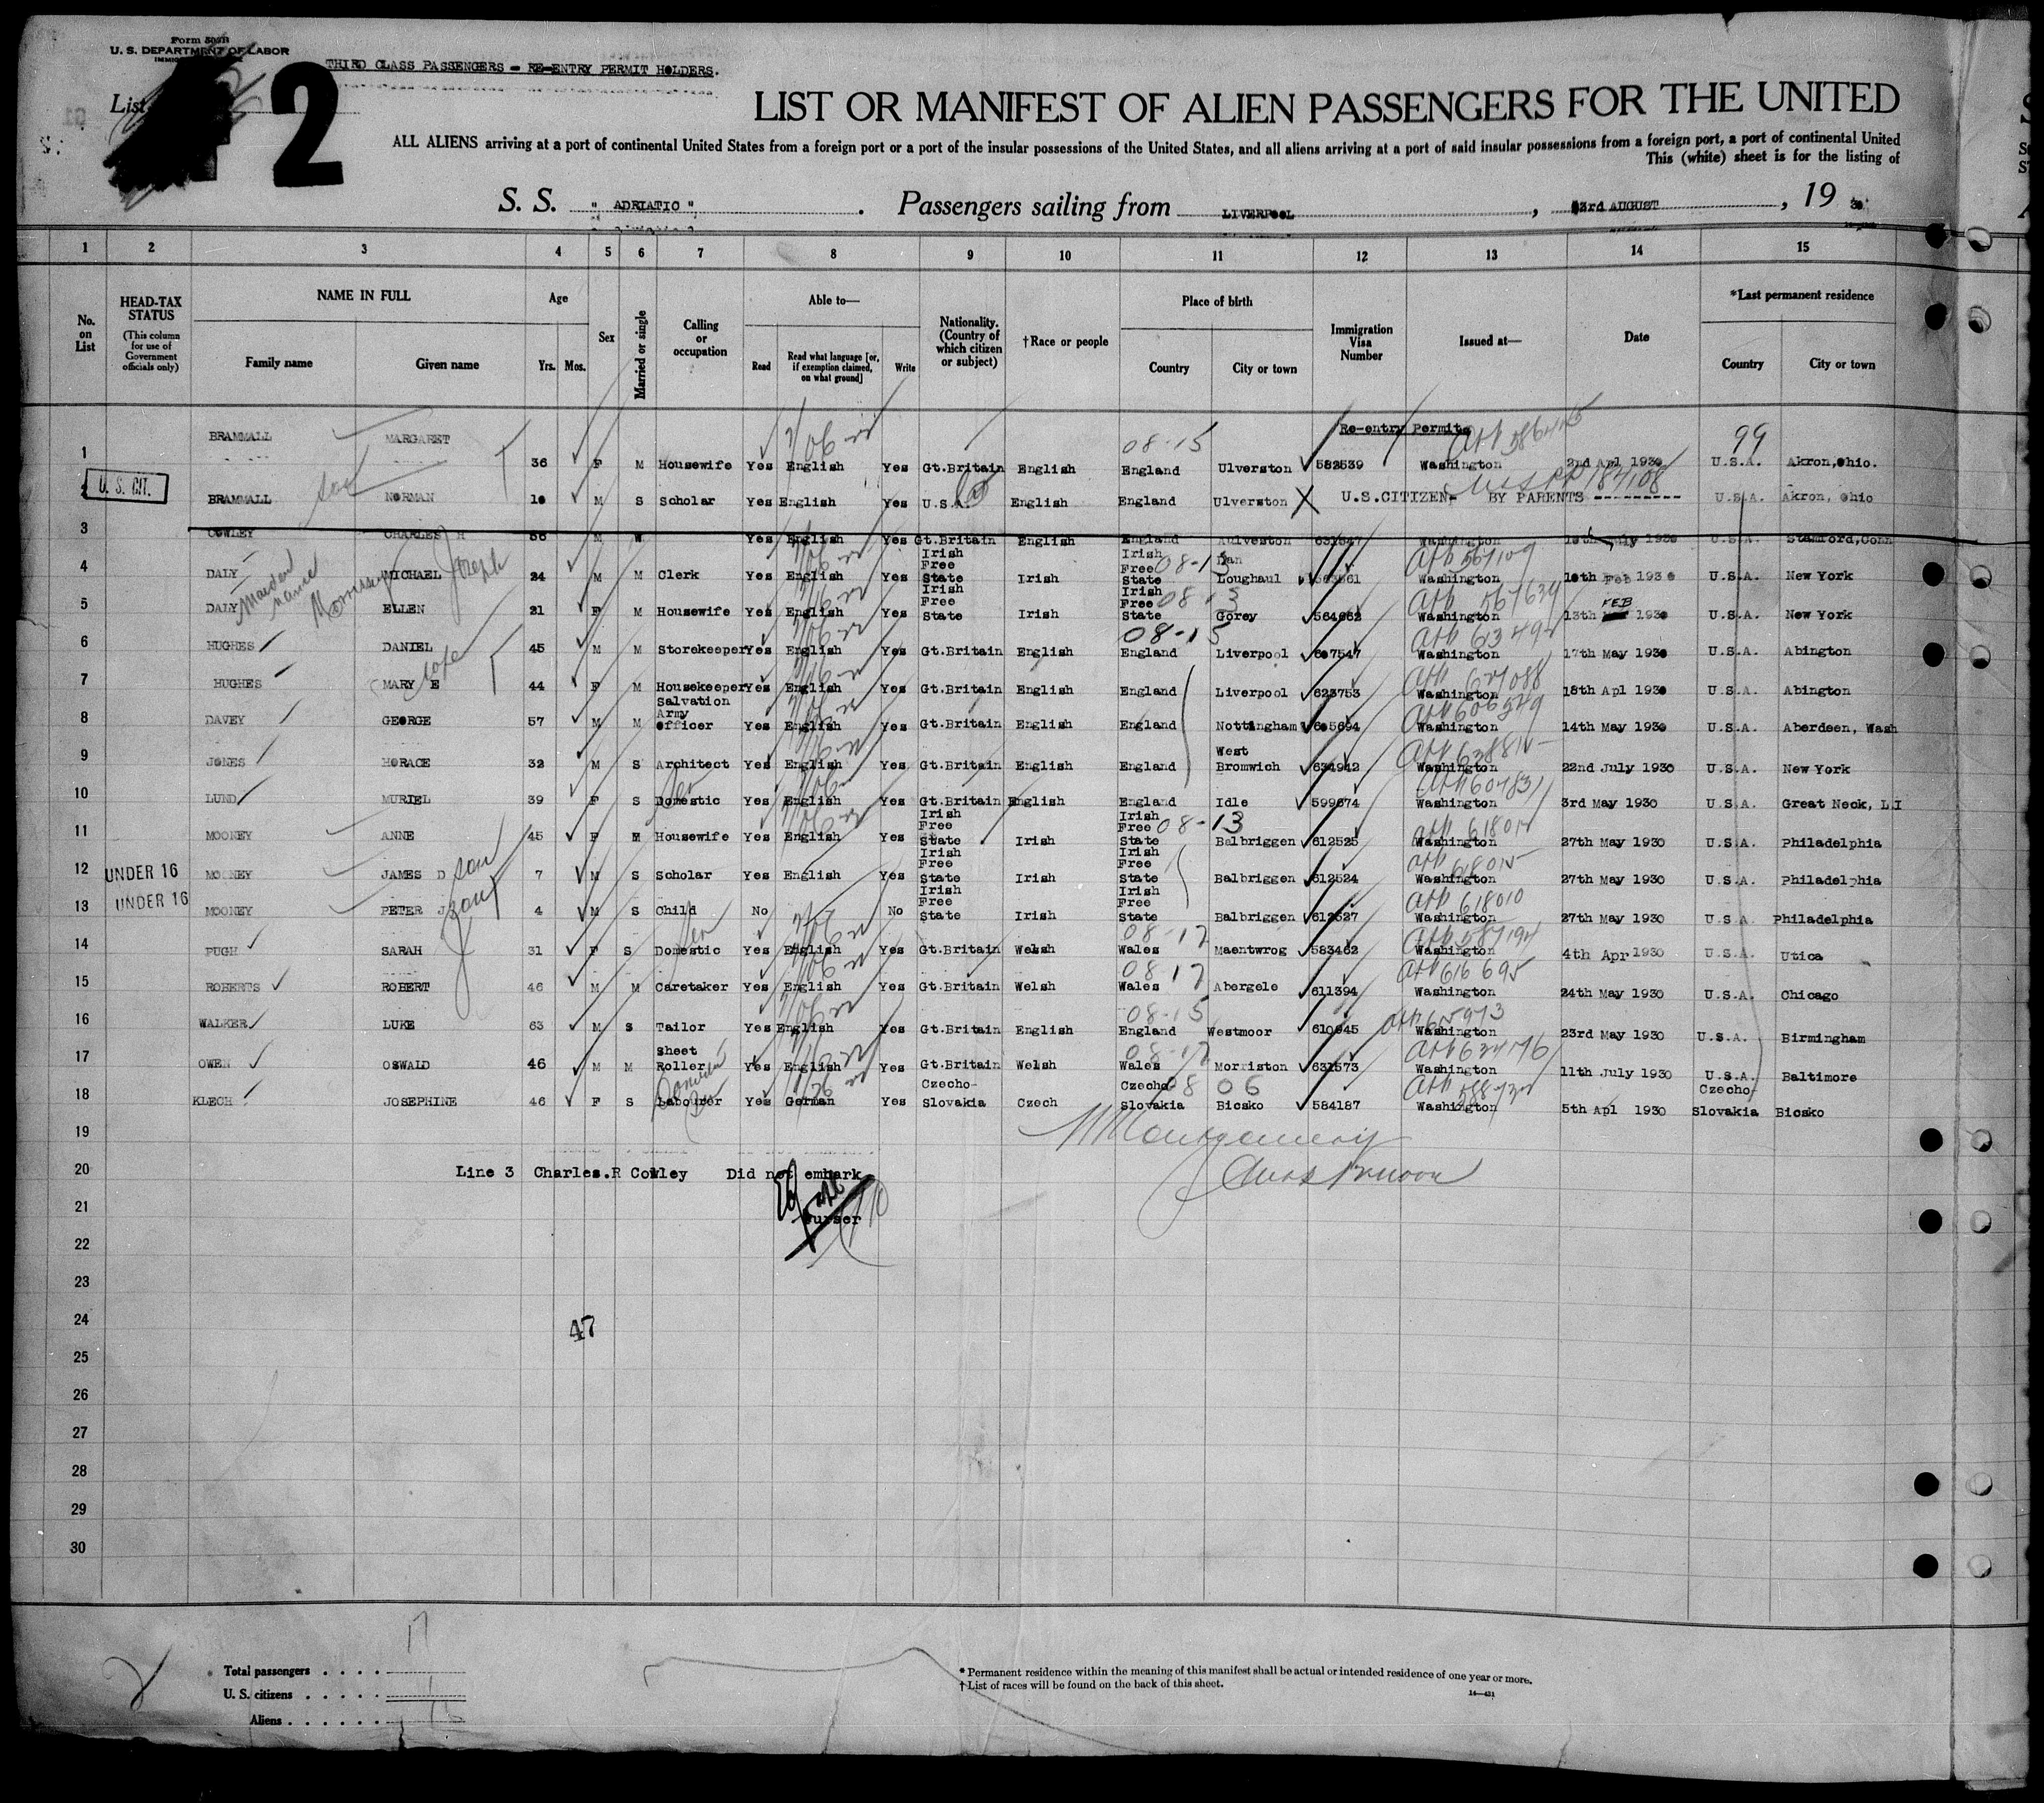 Form 500
U. S. DEPARTMENT OF LABOR
THIRD CLASS PASSENGERS - RE-ENTRY PERMIT HOLDERS.
List
2
LIST OR MANIFEST OF ALIEN PASSENGERS FOR THE UNITED
ALL ALIENS arriving at a port of continental United States from a foreign port or a port of the insular possessions of the United States, and all aliens arriving at a port of said insular possessions from a foreign port, a port of continental United
This (white) sheet is for the listing of
S. S. " ADRIATIC ". Passengers sailing from LIVERPOOL, 23rd AUGUST, 19 30
1 2 3 4 5 6 7 8 9 10 11 12 13 14 15
No. on List
HEAD-TAX STATUS (This column for use of Government officials only)
NAME IN FULL
Family name Given name
Age
Yrs. Mos.
Sex
Married or single
Calling or occupation
Able to—
Read Read what language [or, if exemption claimed, on what ground] Write
Nationality. (Country of which citizen or subject)
†Race or people
Place of birth
Country City or town
Immigration Visa Number
Issued at—
Date
*Last permanent residence
Country City or town
Re-entry Permit
1 BRAMMALL MARGARET 36 F M Housewife Yes English Yes Gt.Britain English England Ulverston 582539 Washington 2nd Apl 1930 U.S.A. Akron,Ohio.
08-15 99
2 U. S. CIT. BRAMMALL son NORMAN 10 M S Scholar Yes English Yes U.S.A. English England Ulverston X U.S.CITIZEN- BY PARENTS ---------- U.S.A. Akron, Ohio
3 COWLEY CHARLES R 56 M Yes English Yes Gt.Britain English England Washington July 1930 U.S.A. Stamford,Conn
4 DALY MICHAEL Joseph 24 M M Clerk Yes English Yes Irish Free State Irish Irish Free State 08-13 Loughaul Washington 10th Feb 1930 U.S.A. New York
5 DALY Maiden name Morrissey ELLEN 21 F M Housewife Yes English Yes Irish Free State Irish Irish Free State 08-13 Gorey 564662 Washington 13th FEB 1930 U.S.A. New York
6 HUGHES DANIEL 45 M M Storekeeper Yes English Yes Gt.Britain English England 08-15 Liverpool 607547 Washington 17th May 1930 U.S.A. Abington
7 HUGHES MARY E wife 44 F M Housekeeper Yes English Yes Gt.Britain English England Liverpool 623753 Washington 18th Apl 1930 U.S.A. Abington
8 DAVEY GEORGE 57 M M Salvation Army Officer Yes English Yes Gt.Britain English England Nottingham 605694 Washington 14th May 1930 U.S.A. Aberdeen, Wash
9 JONES HORACE 32 M S Architect Yes English Yes Gt.Britain English England West Bromwich 634942 Washington 22nd July 1930 U.S.A. New York
10 LUND MURIEL 39 F S Domestic Yes English Yes Gt.Britain English England Idle 599674 Washington 3rd May 1930 U.S.A. Great Neck, L.I
11 MOONEY ANNE 45 F M Housewife Yes English Yes Irish Free State Irish Irish Free State 08-13 Balbriggen 612525 Washington 27th May 1930 U.S.A. Philadelphia
12 UNDER 16 MOONEY JAMES D son 7 M S Scholar Yes English Yes Irish Free State Irish Irish Free State Balbriggen 612524 Washington 27th May 1930 U.S.A. Philadelphia
13 UNDER 16 MOONEY PETER J son 4 M S Child No No Irish Free State Irish Irish Free State Balbriggen 612527 Washington 27th May 1930 U.S.A. Philadelphia
14 PUGH SARAH 31 F S Domestic Yes English Yes Gt.Britain Welsh Wales 08-17 Maentwrog 583462 Washington 4th Apr 1930 U.S.A. Utica
15 ROBERTS ROBERT 46 M M Caretaker Yes English Yes Gt.Britain Welsh Wales 08 17 Abergele 611394 Washington 24th May 1930 U.S.A. Chicago
16 WALKER LUKE 63 M S Tailor Yes English Yes Gt.Britain English England 08-15 Westmoor 610945 Washington 23rd May 1930 U.S.A. Birmingham
17 OWEN OSWALD 46 M M Sheet Roller Yes English Yes Gt.Britain Welsh Wales 08-17 Morriston 631573 Washington 11th July 1930 U.S.A. Baltimore
18 KLECH JOSEPHINE 46 F S Labourer Yes German Yes Czecho-Slovakia Czech Czecho Slovakia 08 06 Bicsko 584187 Washington 5th Apl 1930 Czecho-Slovakia Bicsko
19
20 Line 3 Charles.R Cowley Did not embark
21 Purser
22
23
24 47
25
26
27
28
29
30
Total passengers . . . . 17
U. S. citizens . . . . . 1
Aliens . . . . . . 16
* Permanent residence within the meaning of this manifest shall be actual or intended residence of one year or more.
† List of races will be found on the back of this sheet.
14—431